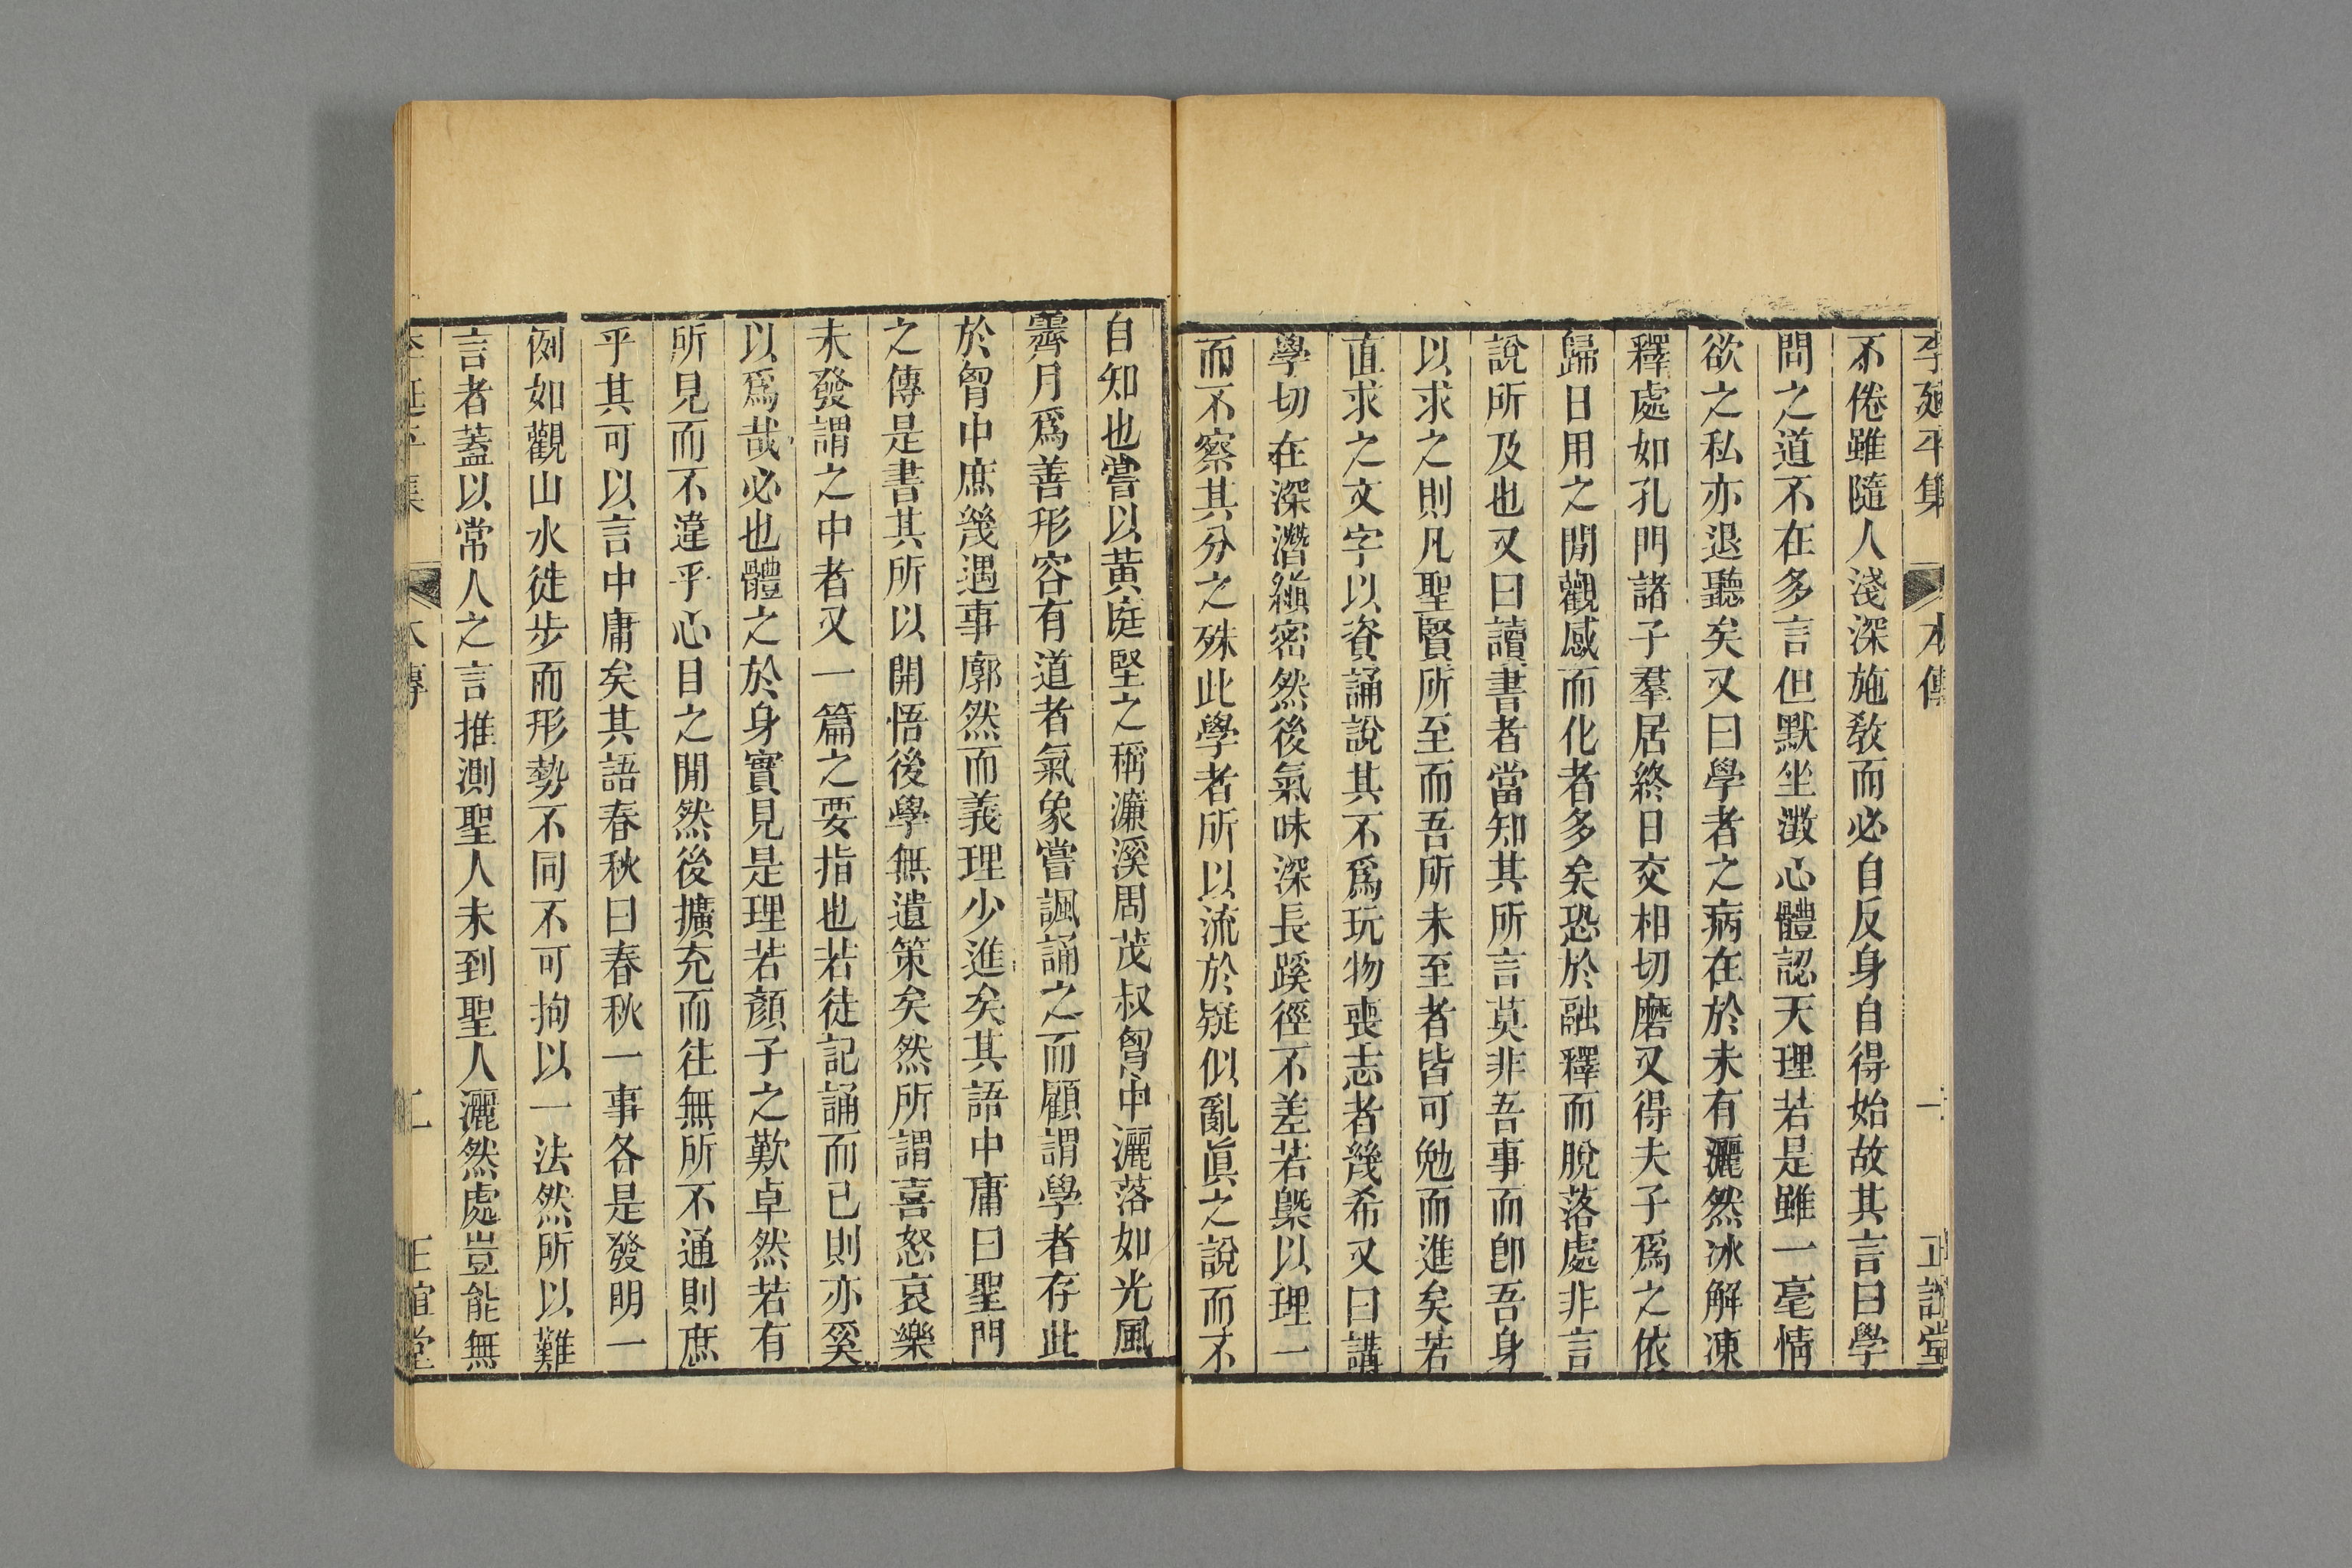 李延平集 本傳 一 正誼堂
不倦雖隨人淺深施敎而必自反身自得始故其言曰學
問之道不在多言但默坐澂心體認天理若是雖一毫情
欲之私亦退聽矣又曰學者之病在於未有灑然冰解凍
釋處如孔門諸子羣居終日交相切磨又得夫子爲之依
歸日用之閒觀感而化者多矣恐於融釋而脫落處非言
說所及也又曰讀書者當知其所言莫非吾事而卽吾身
以求之則凡聖賢所至而吾所未至者皆可勉而進矣若
直求之文字以資誦說其不爲玩物喪志者幾希又曰講
學切在深潛縝密然後氣味深長蹊徑不差若槩以理一
而不察其分之殊此學者所以流於疑似亂眞之說而不
自知也嘗以黃庭堅之稱濂溪周茂叔胷中灑落如光風
霽月爲善形容有道者氣象嘗諷誦之而顧謂學者存此
於胷中庶幾遇事廓然而義理少進矣其語中庸曰聖門
之傳是書其所以開悟後學無遺策矣然所謂喜怒哀樂
未發謂之中者又一篇之要指也若徒記誦而已則亦奚
以爲哉必也體之於身實見是理若顏子之歎卓然若有
所見而不違乎心目之閒然後擴充而往無所不通則庶
乎其可以言中庸矣其語春秋曰春秋一事各是發明一
例如觀山水徙步而形勢不同不可拘以一法然所以難
言者蓋以常人之言推測聖人未到聖人灑然處豈能無
李延平集 本傳 二 正誼堂